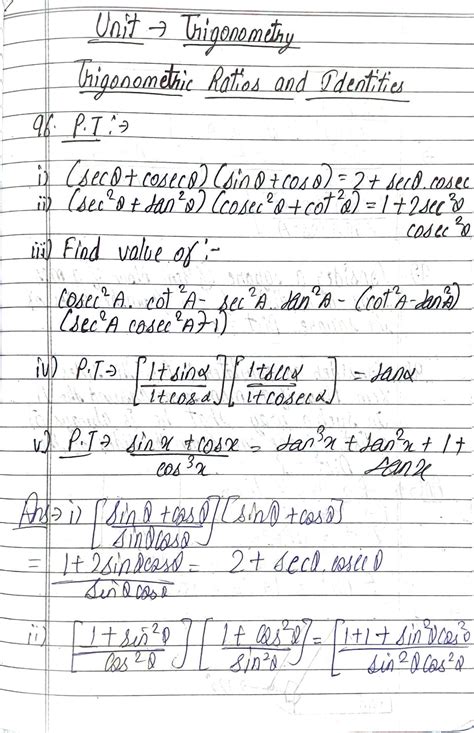 Unit → Trigonometry
Trigonometric Ratios and Identities
96. P.T :→
i) (secθ + cosecθ) (sinθ + cosθ) = 2 + secθ. cosec
ii) (sec²θ + tan²θ) (cosec²θ + cot²θ) = 1 + 2sec²θ
cosec²θ
iii) Find value of :-
cosec²A. cot²A - sec²A tan²A - (cot²A - tan²A)
(sec²A cosec²A - 1)
iv) P.T.→ [1+sinα / 1+cosα] [1+secα / 1+cosecα] = tanα
v) P.T→ sinx + cosx / cos³x = tan³x + tan²x + 1 +
tanx
Ans→ i) [sinθ + cosθ / sinθcosθ] [sinθ + cosθ]
= 1 + 2sinθcosθ / sinθcosθ = 2 + secθ. cosecθ
ii) [1 + sin²θ / cos²θ] [1 + cos²θ / sin²θ] = [1+1+ sin²θcos²θ / sin²θcos²θ